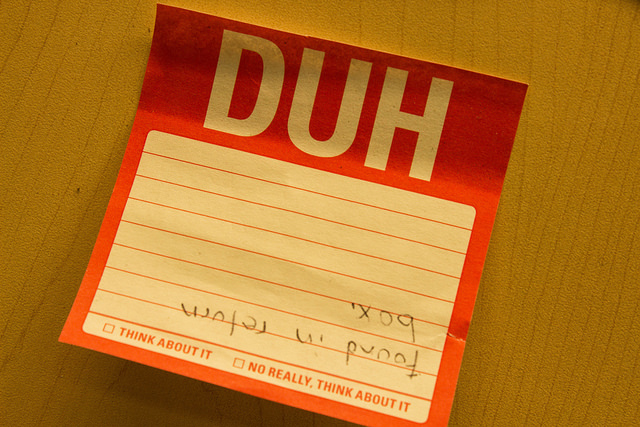 DUH
found in return
box.
☐ THINK ABOUT IT ☐ NO REALLY, THINK ABOUT IT